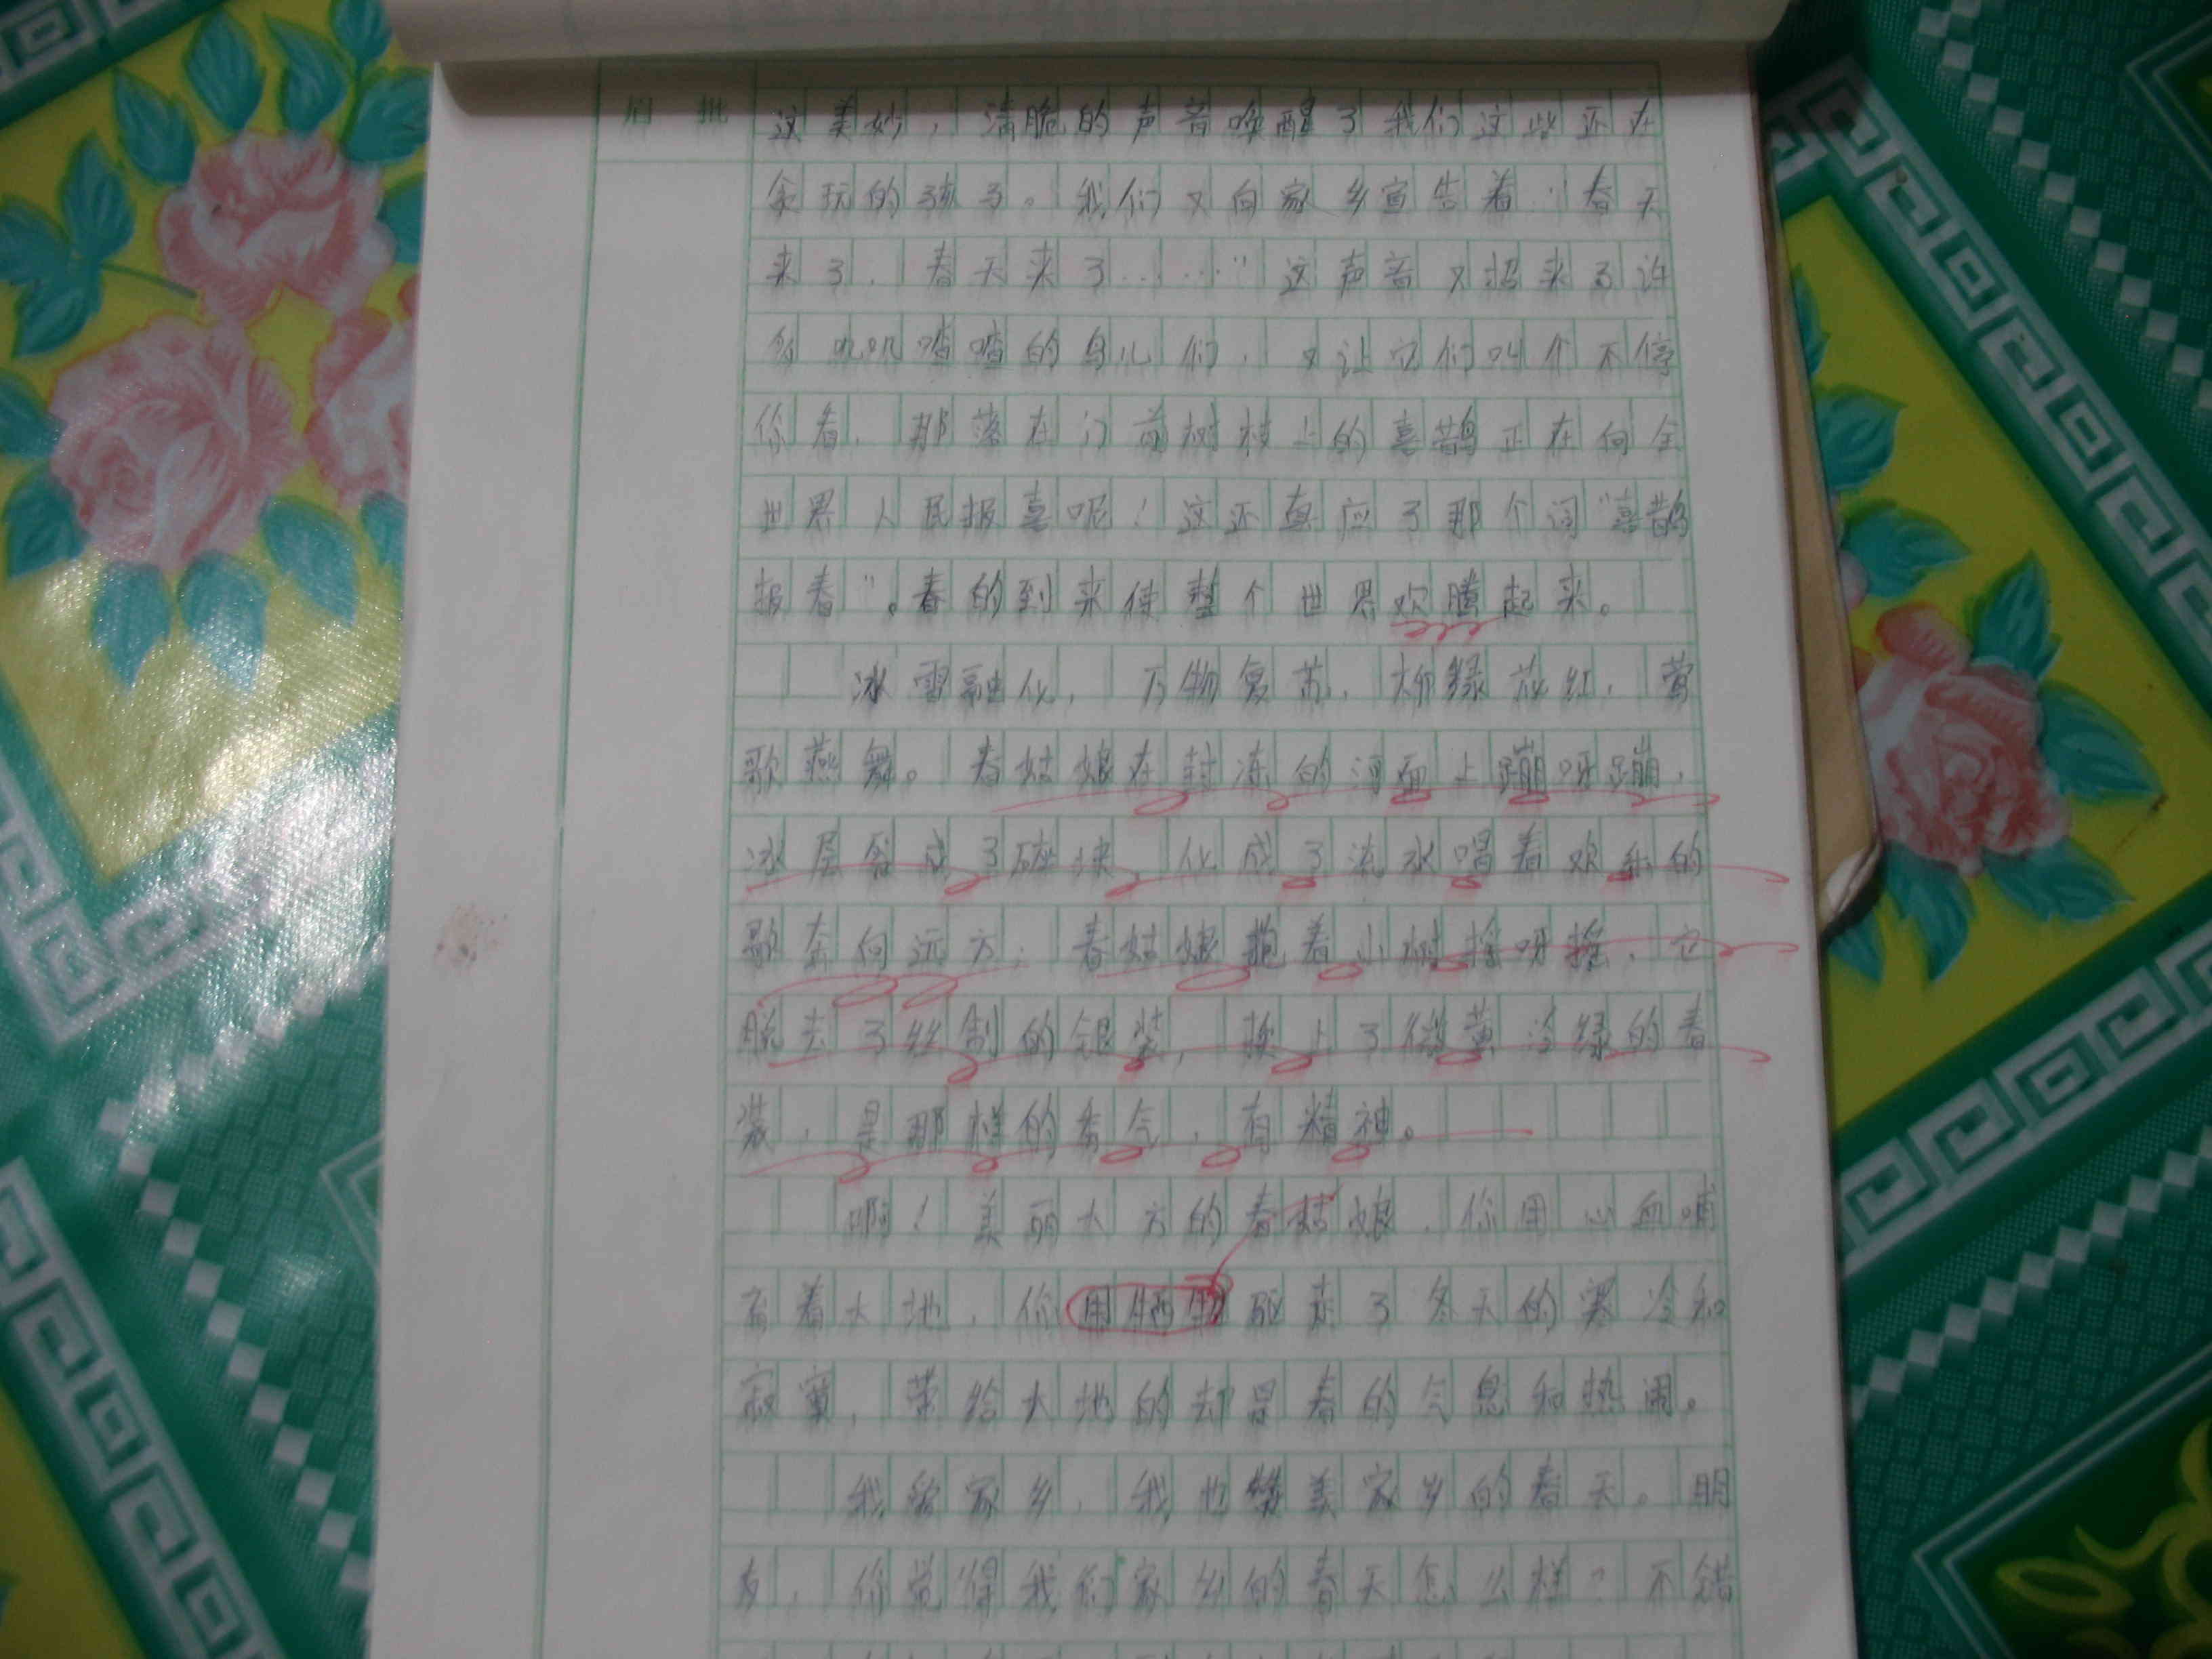 眉 批
这美妙，清脆的声音唤醒了我们这些还在
贪玩的孩子。我们又向家乡宣告着“春天
来了，春天来了……”这声音又招来了许
多叽叽喳喳的鸟儿们，又让它们叫个不停
你看，那落在门前树枝上的喜鹊正在向全
世界人民报喜呢！这还真应了那个词“喜鹊
报春”。春的到来使整个世界欢腾起来。
冰雪融化，万物复苏，柳绿花红，莺
歌燕舞。春姑娘在封冻的河面上蹦呀蹦，
冰层裂成了碎块，化成了流水唱着欢乐的
歌奔向远方；春姑娘抱着小树摇呀摇，它
脱去了丝制的银装，换上了微黄冷绿的春
装，是那样的秀气，有精神。
啊！美丽大方的春姑娘，你用心血哺
育着大地，你用牺牲驱走了冬天的寒冷和
寂寞，带给大地的却是春的气息和热闹。
我爱家乡，我也赞美家乡的春天。朋
友，你觉得我们家乡的春天怎么样？不错